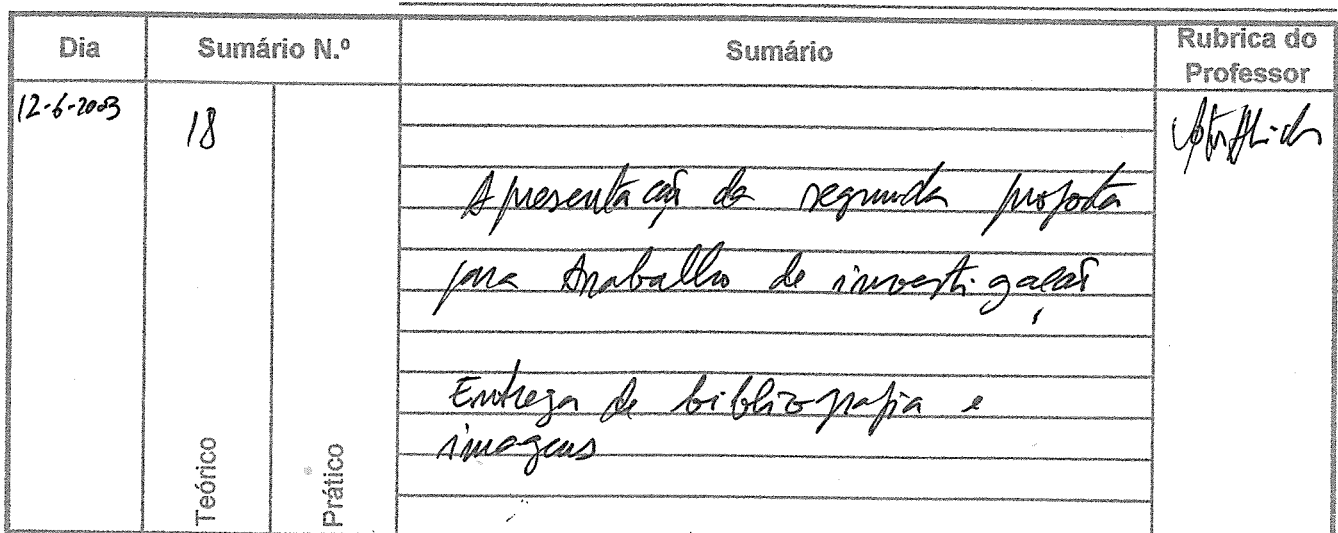 Dia Sumário N.º Sumário Rubrica do Professor
12-6-2003 18
Apresentação da segunda proposta
para trabalho de investigação
Entrega de bibliografia e
imagens
Teórico Prático